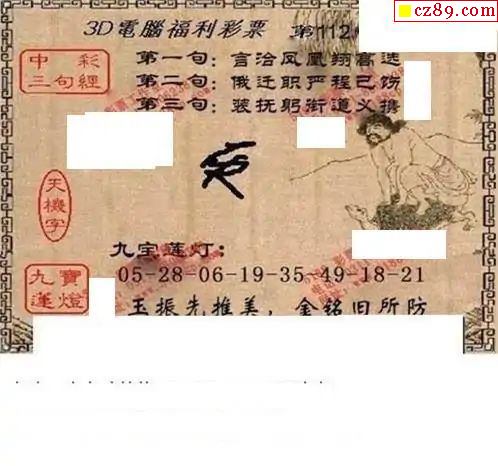 cz89.com
3D電腦福利彩票 第112
中彩
三句經
第一句：言洽凤凰翔高选
第二句：俄迁职严程已饬
第三句：装抚躬街道义撰
天機字
九宝莲灯：
九寶
蓮燈
05-28-06-19-35-49-18-21
玉振先推美，金铭旧所防